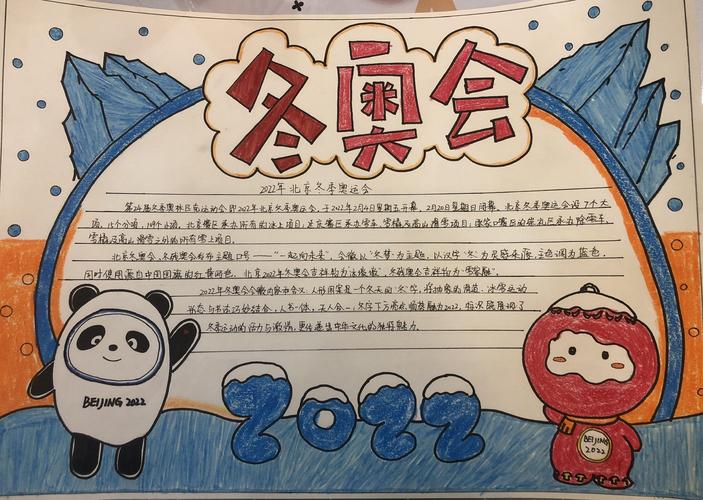 冬奥会
2022年北京冬季奥运会
第24届冬季奥林匹克运动会即2022年北京冬季奥运会,于2022年2月4日星期五开幕,2月20日星期日闭幕。北京冬季奥运会设7个大
项,15个分项,109个小项。北京赛区承办所有的冰上项目;延庆赛区承办雪车、雪橇及高山滑雪项目;张家口赛区的崇礼区承办除雪车、
雪橇及高山滑雪之外的所有雪上项目。
北京冬奥会、冬残奥会发布主题口号——“一起向未来”,会徽以“冬梦”为主题,以汉字“冬”为灵感来源,主色调为蓝色,
同时使用源自中国国旗的红黄两色,北京2022年冬奥会吉祥物为冰墩墩,冬残奥会吉祥物为“雪容融”。
2022年冬奥会会徽内容和含义:人形图案是一个冬天的“冬”字,
形态与书法巧妙结合,人书一体,天人合一,“冬”字下方
冬季运动的活力与激情,更传递出中华文化的独特魅力。
BEIJING 2022
2022
BEIJING
2022